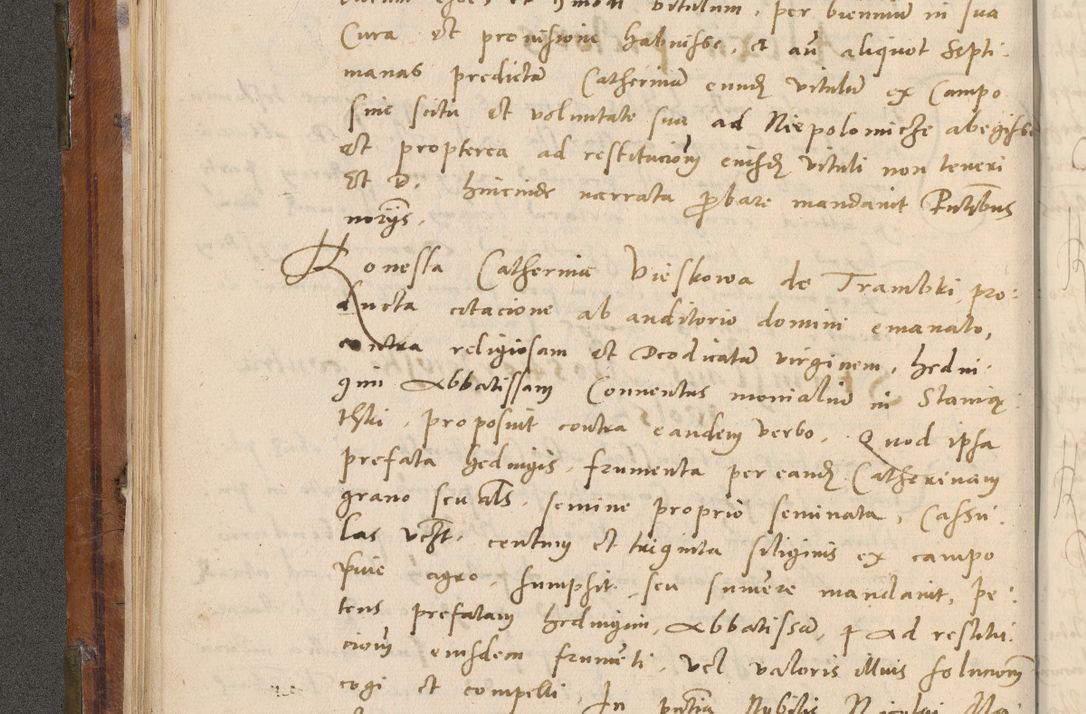 vitulum, per biennium in sua
Cura et provisione habuisse, et aũ aliquot septi:
manas predictã Catherinã eundẽ vitulũ ex Campo
sine scitu et voluntate sua ad Niepolomicze abegisse
et propterea ad restitucionẽ eiusdẽ vituli non teneri
Et D. hincinde narrata ꝓbare mandavit Ptibus
nõrijs.
Honesta Catherina Vieskowa de Trambki, pro:
ducta citacione ab auditorio domini emanato,
contra religiosam et Deodicatã virginem, hedvi:
gim Abbatissam Conventus monialiũ in Stanią:
thki, proposuit contra eandem verbo. Quod ipsa
prefata hedvigis, frumenta per eandẽ Catherinam
grano seu als, semine proprio seminata, Cassu:
las vcꝫt, centum et triginta siliginis ex campo
sive agro sumpsit, seu sumere mandavit, Pe:
tens prefatam hedvigim, Abbatissã, ꝓ Ad restitu:
cionẽ eiusdem frumẽti, vel valoris illius solucionẽ
cogi et compelli, In pñtia Nobilis Nicolai